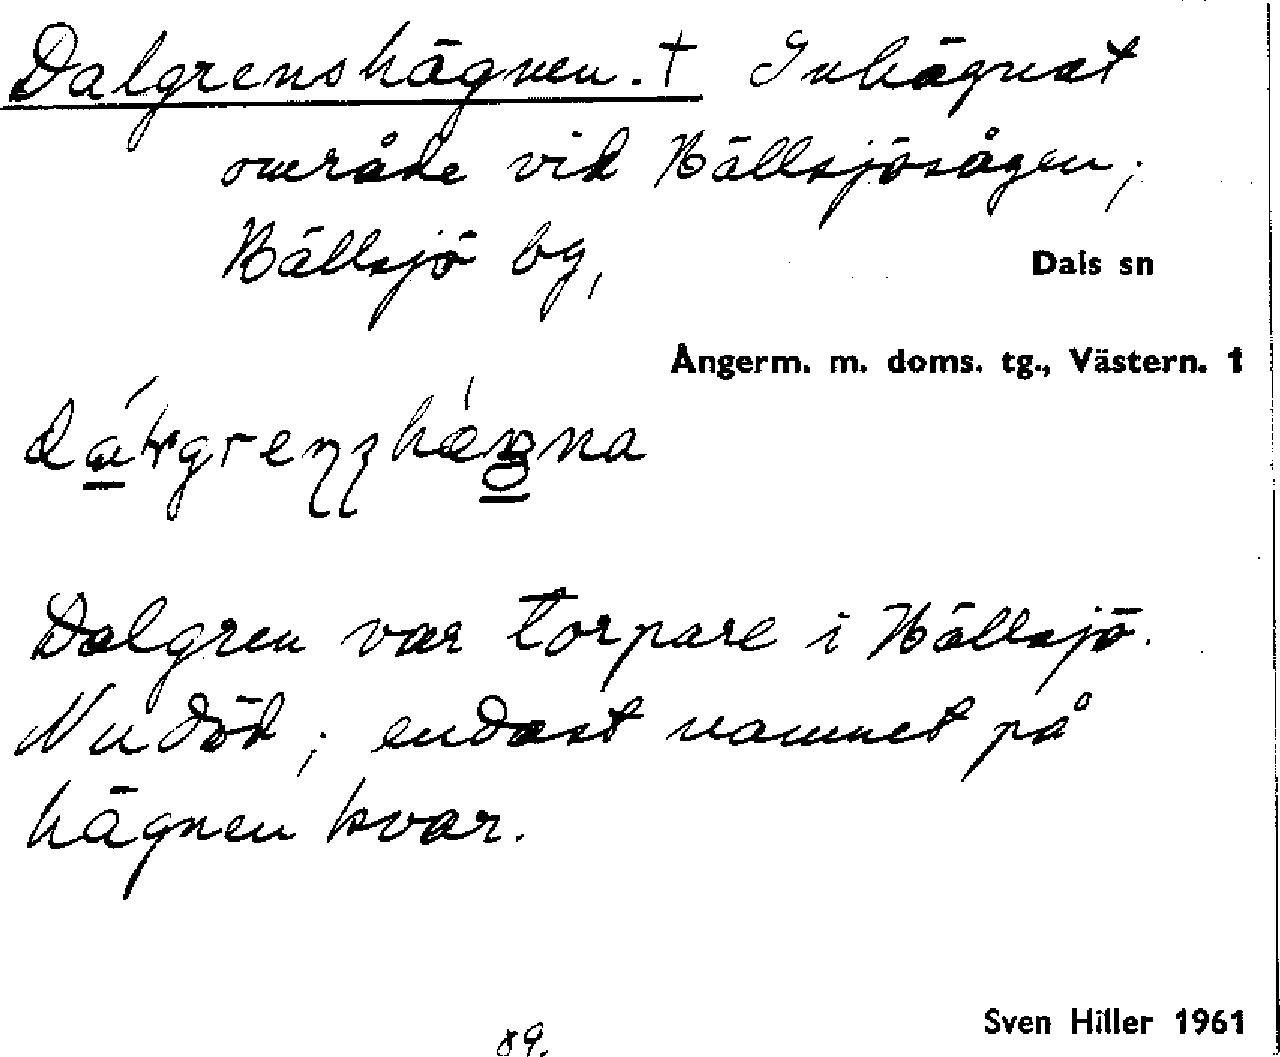 Dalgrenshägnen. † Inhägnat
område vid Hällsjösågen;
Hällsjö by,
Dals sn
Ångerm. m. doms. tg., Västern. 1
Dalgren var torpare i Hällsjö.
Nu död; endast namnet på
hägnen kvar.
Sven Hiller 1961
89.